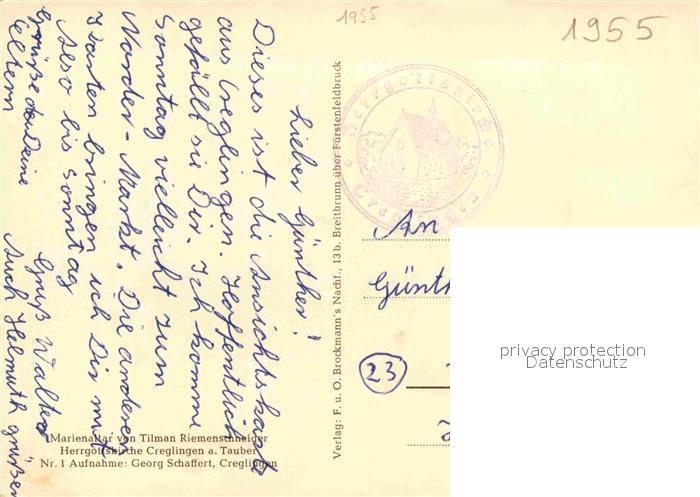 1955
1955
Lieber Günther!
Dieses ist die Ansichtskarte
aus Creglingen. Hoffentlich
gefällt sie Dir. Ich komme
Sonntag vielleicht zum
Norder-Markt. Die anderen
Karten bringen ich Dir mit
Also bis Sonntag
Gruß Walter
Grüße Deine
Eltern
Auch Helmuth grüßen
Marienaltar von Tilman Riemenschneider
Herrgottskirche Creglingen a. Tauber
Nr. 1 Aufnahme: Georg Schaffert, Creglingen
Verlag: F. u. O. Brockmann's Nachf., 13 b. Breitbrunn über Fürstenfeldbruck
Herrgottskirche
An
Günth
23
privacy protection
Datenschutz